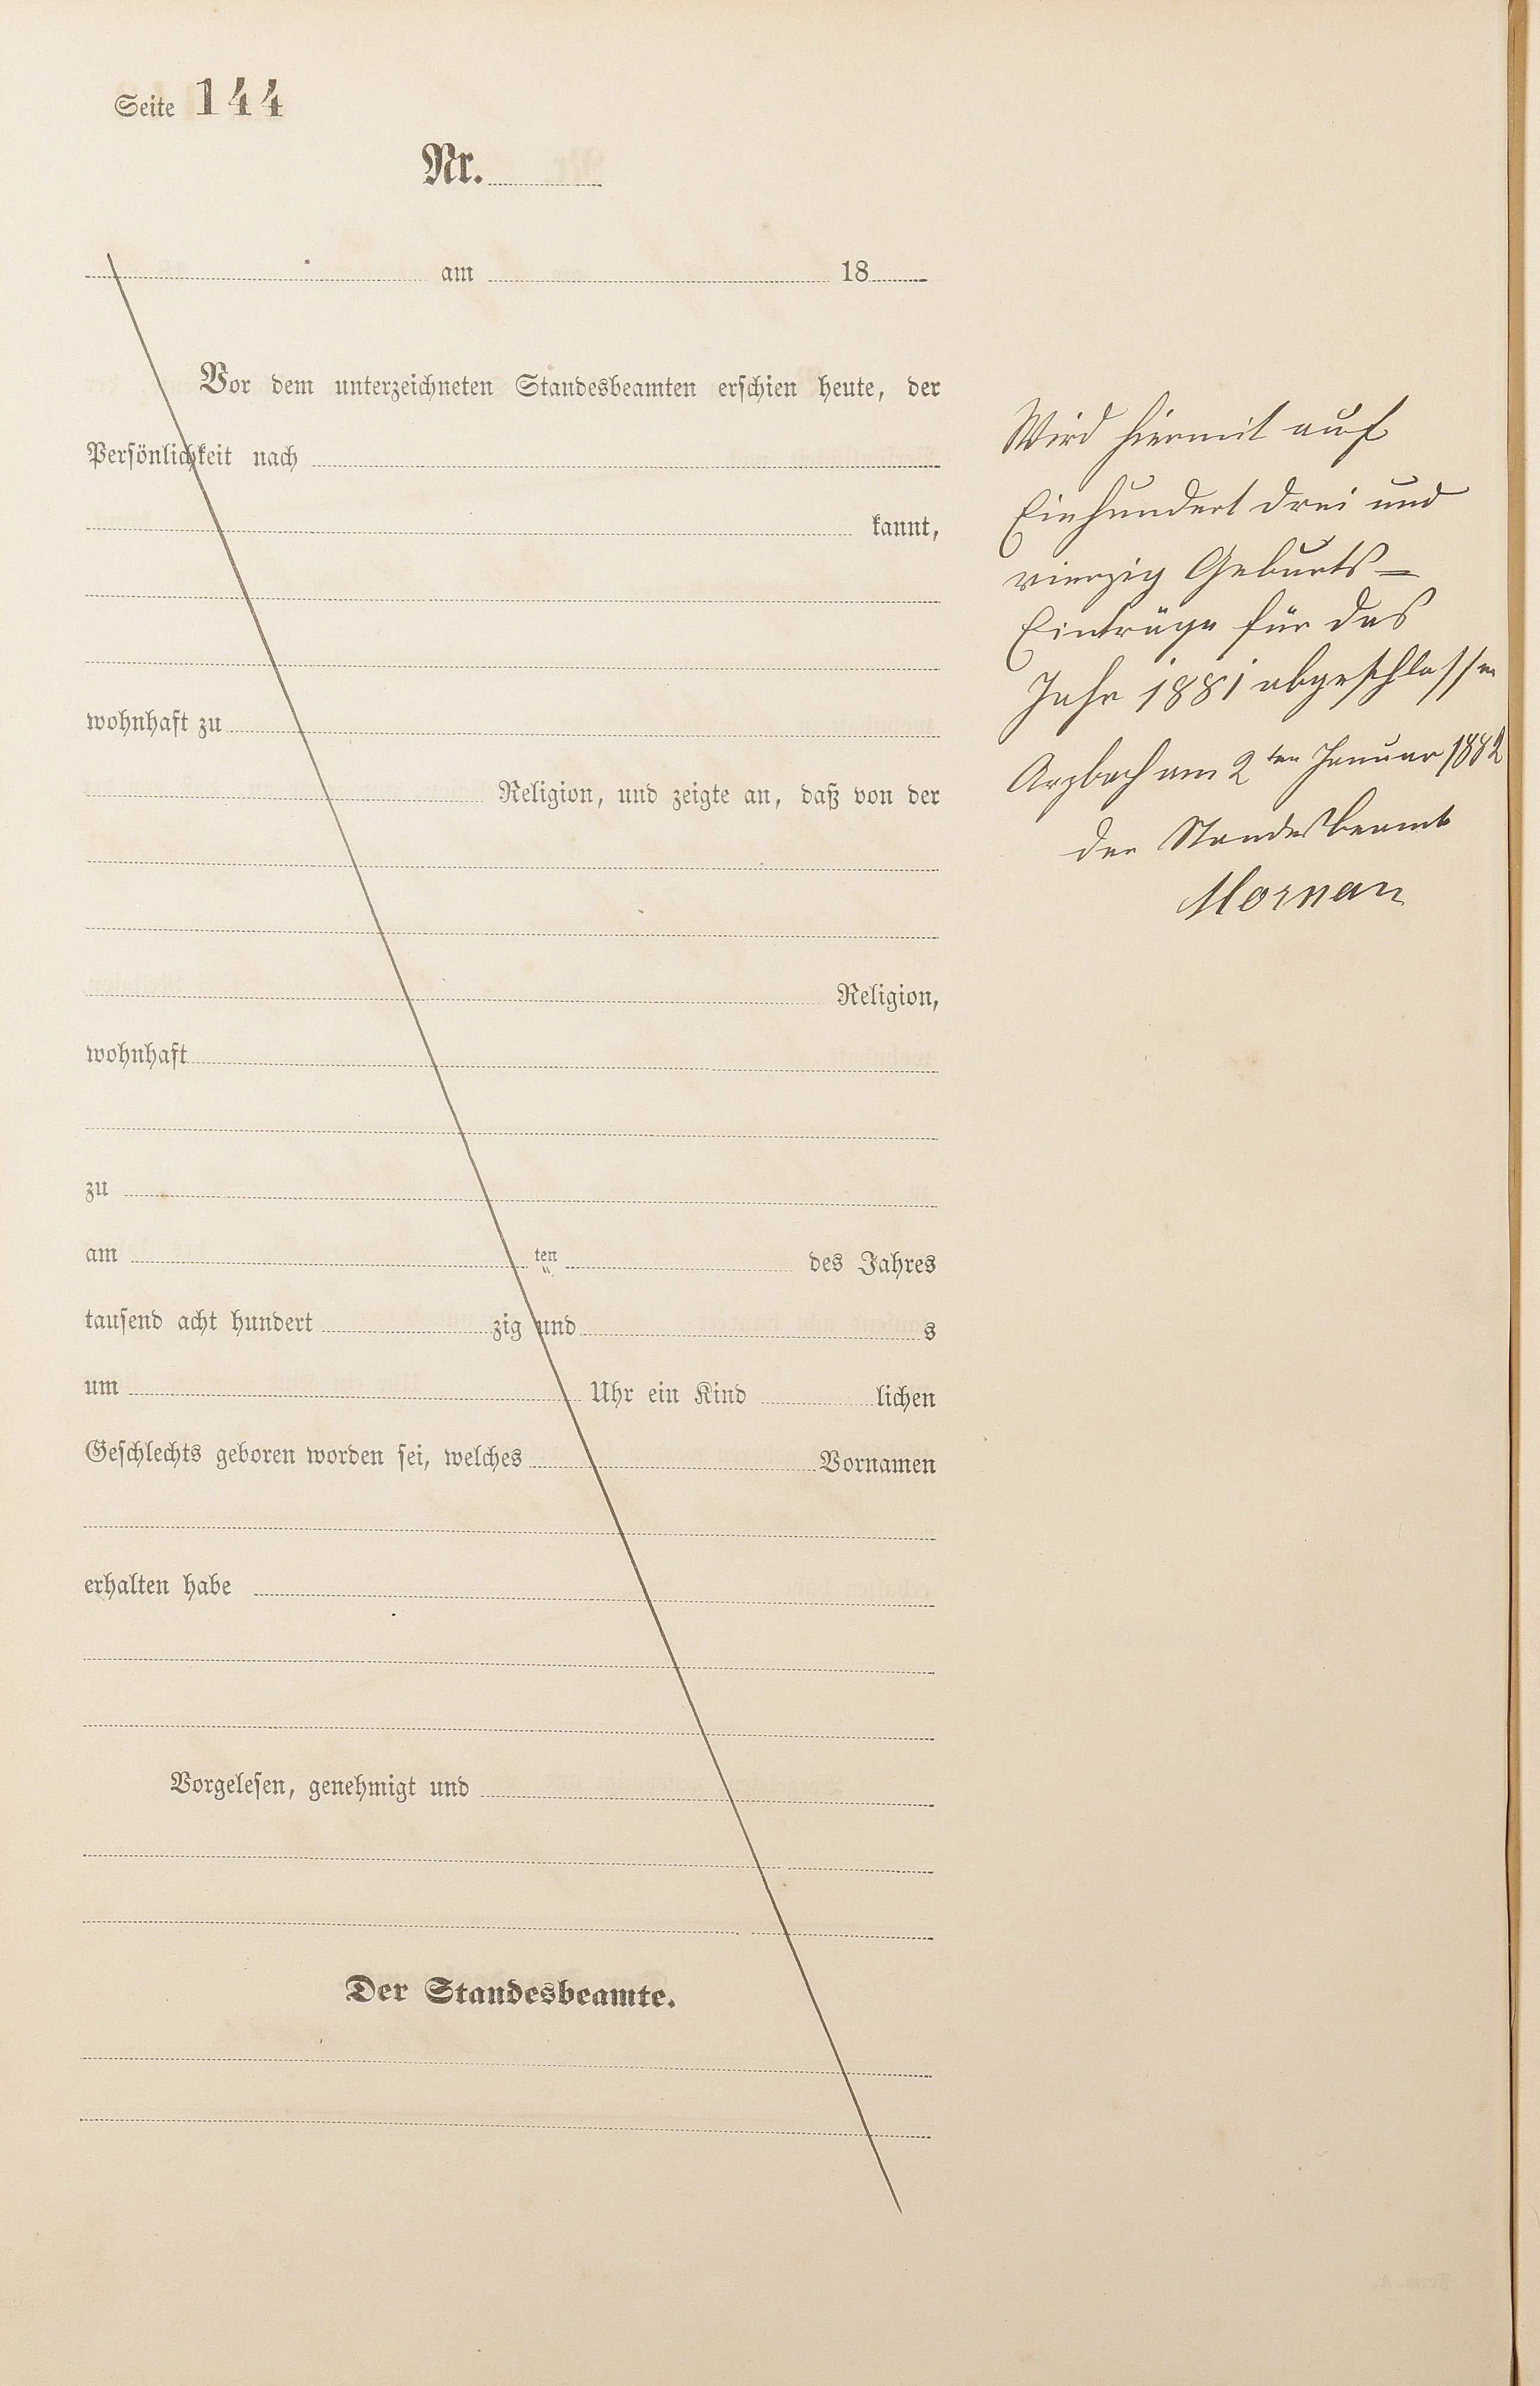 Seite 144
Nr.
am 18
Vor dem unterzeichneten Standesbeamten erschien heute, der
Persönlichkeit nach
kannt,
wohnhaft zu
Religion, und zeigte an, daß von der
Religion,
wohnhaft
zu
am ten des Jahres
tausend acht hundert zig und s
um Uhr ein Kind lichen
Geschlechts geboren worden sei, welches Vornamen
erhalten habe
Vorgelesen, genehmigt und
Der Standesbeamte.
Wird hiermit auf
Einhundert drei und
vierzig Geburts=
Einträge für das
Jahr 1881 abgeschlossen
Arzbach am 2ten Januar 1882
der Standesbeamte